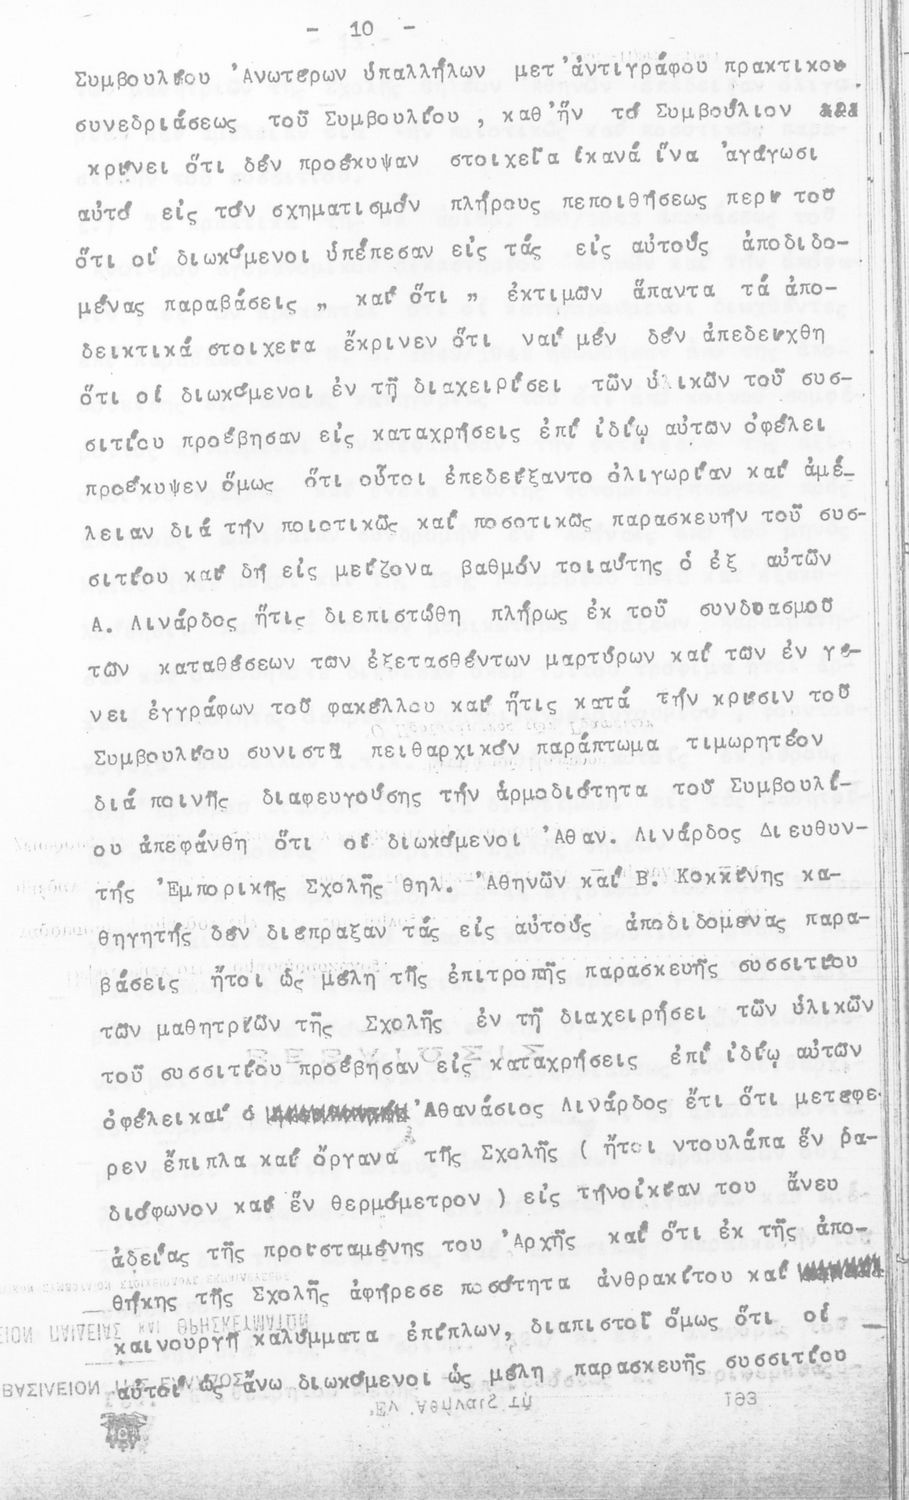 - 10 -
Συμβουλίου Ἀνωτέρων ὑπαλλήλων μετ' ἀντιγράφου πρακτικοῦ
συνεδριάσεως τοῦ Συμβουλίου , καθ' ἥν τό Συμβούλιον
κρίνει ὅτι δέν προέκυψαν στοιχεῖα ἱκανά ἵνα ἀγάγωσι
αὐτό εἰς τόν σχηματισμόν πλήρους πεποιθήσεως περί τοῦ
ὅτι οἱ διωκόμενοι ὑπέπεσαν εἰς τάς εἰς αὐτούς ἀποδιδο-
μένας παραβάσεις „ καί ὅτι „ ἐκτιμῶν ἅπαντα τά ἀπο-
δεικτικά στοιχεῖα ἔκρινεν ὅτι ναί μέν δέν ἀπεδείχθη
ὅτι οἱ διωκόμενοι ἐν τῇ διαχειρίσει τῶν ὑλικῶν τοῦ συσ-
σιτίου προέβησαν εἰς καταχρήσεις ἐπί ἰδίῳ αὐτῶν ὀφέλει
προέκυψεν ὅμως ὅτι οὗτοι ἐπεδείξαντο ὀλιγωρίαν καί ἀμέ-
λειαν διά τήν ποιοτικῶς καί ποσοτικῶς παρασκευήν τοῦ συσ-
σιτίου καί δή εἰς μείζονα βαθμόν τοιαύτης ὁ ἐξ αὐτῶν
Α. Λινάρδος ἥτις διεπιστώθη πλήρως ἐκ τοῦ συνδυασμοῦ
τῶν καταθέσεων τῶν ἐξετασθέντων μαρτύρων καί τῶν ἐν γέ-
νει ἐγγράφων τοῦ φακέλλου καί ἥτις κατά τήν κρίσιν τοῦ
Συμβουλίου συνιστᾶ πειθαρχικόν παράπτωμα τιμωρητέον
διά ποινῆς διαφευγούσης τήν ἁρμοδιότητα τοῦ Συμβουλί-
ου ἀπεφάνθη ὅτι οἱ διωκόμενοι Ἀθαν. Λινάρδος Διευθυν-
τής Ἐμπορικῆς Σχολῆς θηλ. Ἀθηνῶν καί Β. Κοκκίνης κα-
θηγητής δέν διέπραξαν τάς εἰς αὐτούς ἀποδιδομένας παρα-
βάσεις ἤτοι ὡς μέλη τῆς ἐπιτροπῆς παρασκευῆς συσσιτίου
τῶν μαθητριῶν τῆς Σχολῆς ἐν τῇ διαχειρήσει τῶν ὑλικῶν
τοῦ συσσιτίου προέβησαν εἰς καταχρήσεις ἐπί ἰδίῳ αὐτῶν
ὀφέλει καί ὁ Ἀθανάσιος Λινάρδος ἔτι ὅτι μετέφε-
ρεν ἔπιπλα καί ὄργανα τῆς Σχολῆς ( ἤτοι ντουλάπα ἕν ρα-
διόφωνον καί ἕν θερμόμετρον ) εἰς τήν οἰκίαν του ἄνευ
ἀδείας τῆς προϊσταμένης του Ἀρχῆς καί ὅτι ἐκ τῆς ἀπο-
θήκης τῆς Σχολῆς ἀφήρεσε ποσότητα ἀνθρακίτου καί
καινουργῆ καλύμματα ἐπίπλων, διαπιστοῖ ὅμως ὅτι οἱ
αὐτοί ὡς ἄνω διωκόμενοι ὡς μέλη παρασκευῆς συσσιτίου